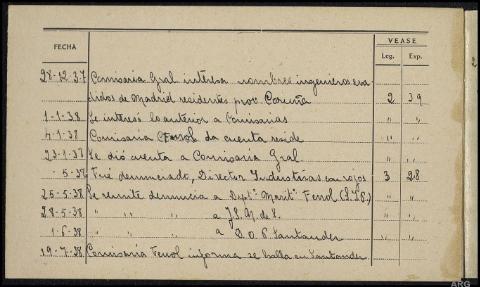 FECHA VEASE
Leg. Exp.
28-12-37 Comisaria Gral interesa nombres ingenieros eva
didos de Madrid residentes prov. Coruña 2 39
1-1-38 Se interesó lo anterior a Comisarias " "
4-1-38 Comisaria Ferrol da cuenta reside " "
23-1-37 Se dió cuenta a Comisaria Gral " "
-5-38 Fué denunciado, Director Industrias con rojos 3 28
25-5-38 Se remite denuncia a Deptº. Maritº. Ferrol " "
28-5-38 " " " a " "
1-6-38 " " " a D.O.P. Santander " "
19-7-38 Comisaría Ferrol informa se halla en Santander " "
ARG